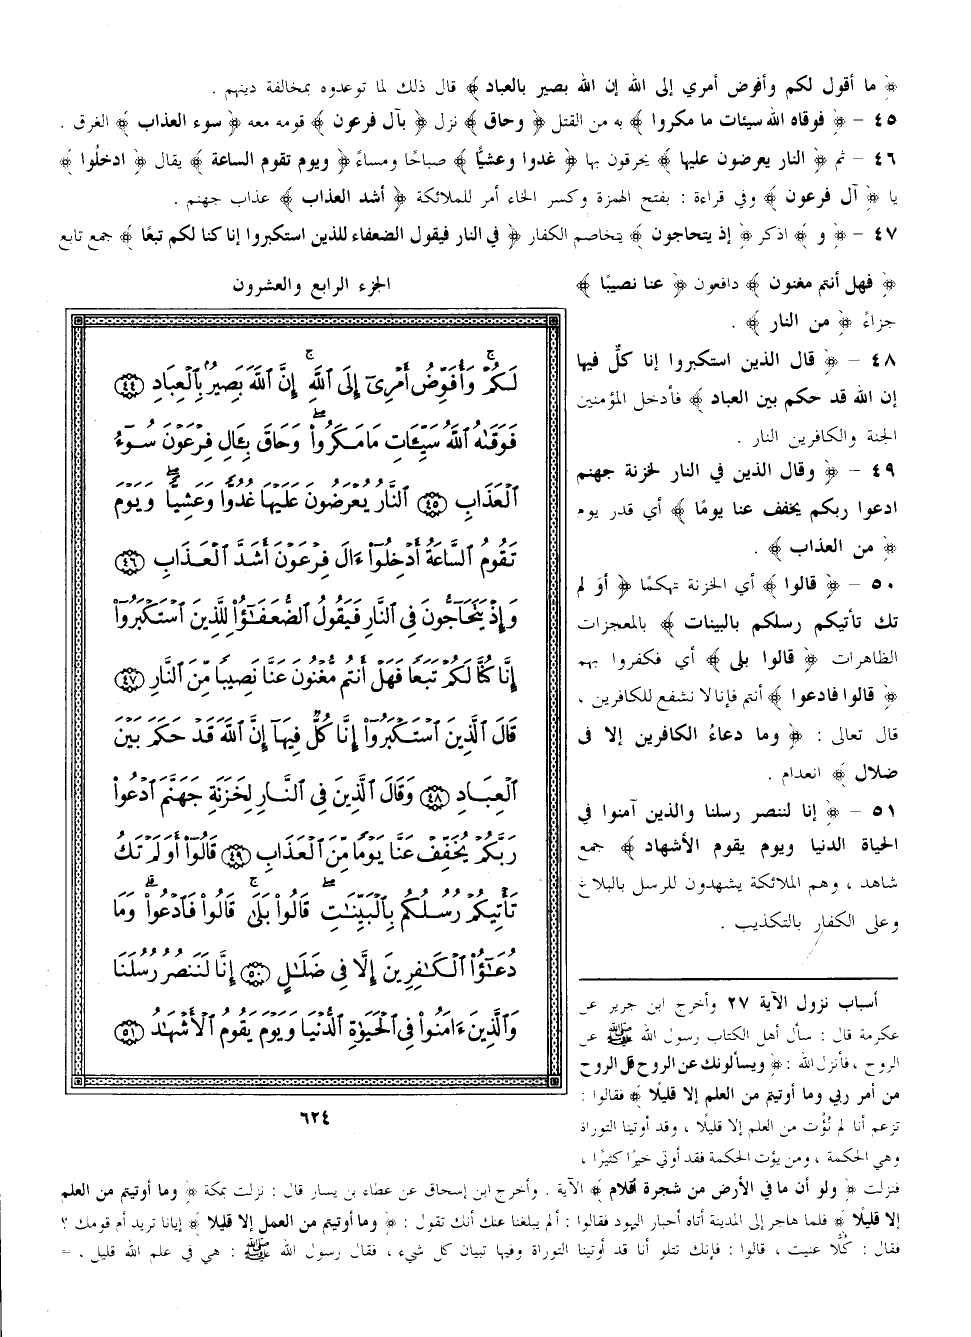 ﴿ ما أقول لكم وأفوض أمري إلى الله إن الله بصير بالعباد ﴾ قال ذلك لما توعدوه بمخالفة دينهم .
٤٥ - ﴿ فوقاه الله سيئات ما مكروا ﴾ به من القتل ﴿ وحاق ﴾ نزل ﴿ بآل فرعون ﴾ قومه معه ﴿ سوء العذاب ﴾ الغرق .
٤٦ - ثم ﴿ النار يعرضون عليها ﴾ يحرقون بها ﴿ غدوا وعشيًّا ﴾ صباحًا ومساءً ﴿ ويوم تقوم الساعة ﴾ يقال ﴿ ادخلُوا ﴾
يا ﴿ آل فرعون ﴾ وفي قراءة : بفتح الهمزة وكسر الخاء أمر للملائكة ﴿ أشد العذاب ﴾ عذاب جهنم .
٤٧ - ﴿ و ﴾ اذكر ﴿ إذ يتحاجون ﴾ يتخاصم الكفار ﴿ في النار فيقول الضعفاء للذين استكبروا إنا كنا لكم تبعًا ﴾ جمع تابع
﴿ فهل أنتم مغنون ﴾ دافعون ﴿ عنا نصيبًا ﴾
جزاءً ﴿ من النار ﴾ .
٤٨ - ﴿ قال الذين استكبروا إنا كلٌّ فيها
إن الله قد حكم بين العباد ﴾ فأدخل المؤمنين
الجنة والكافرين النار .
٤٩ - ﴿ وقال الذين في النار لخزنة جهنم
ادعوا ربكم يخفف عنا يومًا ﴾ أي قدر يوم
﴿ من العذاب ﴾ .
٥٠ - ﴿ قالوا ﴾ أي الخزنة تهكمًا ﴿ أوَ لم
تك تأتيكم رسلكم بالبينات ﴾ بالمعجزات
الظاهرات ﴿ قالوا بلى ﴾ أي فكفروا بهم
﴿ قالوا فادعوا ﴾ أنتم فإنا لا نشفع للكافرين ،
قال تعالى : ﴿ وما دعاءُ الكافرين إلا في
ضلال ﴾ انعدام .
٥١ - ﴿ إنا لننصر رسلنا والذين آمنوا في
الحياة الدنيا ويوم يقوم الأشهاد ﴾ جمع
شاهد ، وهم الملائكة يشهدون للرسل بالبلاغ
وعلى الكفار بالتكذيب .
الجزء الرابع والعشرون
لَكُمْ وَأُفَوِّضُ أَمْرِىٓ إِلَى ٱللَّهِ ۚ إِنَّ ٱللَّهَ بَصِيرٌۢ بِٱلْعِبَادِ ٤٤
فَوَقَىٰهُ ٱللَّهُ سَيِّـَٔاتِ مَا مَكَرُوا۟ ۖ وَحَاقَ بِـَٔالِ فِرْعَوْنَ سُوٓءُ
ٱلْعَذَابِ ٤٥ ٱلنَّارُ يُعْرَضُونَ عَلَيْهَا غُدُوًّا وَعَشِيًّا ۖ وَيَوْمَ
تَقُومُ ٱلسَّاعَةُ أَدْخِلُوٓا۟ ءَالَ فِرْعَوْنَ أَشَدَّ ٱلْعَذَابِ ٤٦
وَإِذْ يَتَحَآجُّونَ فِى ٱلنَّارِ فَيَقُولُ ٱلضُّعَفَـٰٓؤُا۟ لِلَّذِينَ ٱسْتَكْبَرُوٓا۟
إِنَّا كُنَّا لَكُمْ تَبَعًا فَهَلْ أَنتُم مُّغْنُونَ عَنَّا نَصِيبًا مِّنَ ٱلنَّارِ ٤٧
قَالَ ٱلَّذِينَ ٱسْتَكْبَرُوٓا۟ إِنَّا كُلٌّ فِيهَآ إِنَّ ٱللَّهَ قَدْ حَكَمَ بَيْنَ
ٱلْعِبَادِ ٤٨ وَقَالَ ٱلَّذِينَ فِى ٱلنَّارِ لِخَزَنَةِ جَهَنَّمَ ٱدْعُوا۟
رَبَّكُمْ يُخَفِّفْ عَنَّا يَوْمًا مِّنَ ٱلْعَذَابِ ٤٩ قَالُوٓا۟ أَوَلَمْ تَكُ
تَأْتِيكُمْ رُسُلُكُم بِٱلْبَيِّنَـٰتِ ۖ قَالُوا۟ بَلَىٰ ۚ قَالُوا۟ فَٱدْعُوا۟ ۗ وَمَا
دُعَـٰٓؤُا۟ ٱلْكَـٰفِرِينَ إِلَّا فِى ضَلَـٰلٍ ٥٠ إِنَّا لَنَنصُرُ رُسُلَنَا
وَٱلَّذِينَ ءَامَنُوا۟ فِى ٱلْحَيَوٰةِ ٱلدُّنْيَا وَيَوْمَ يَقُومُ ٱلْأَشْهَـٰدُ ٥١
٦٢٤
أسباب نزول الآية ٢٧ وأخرج ابن جرير عن
عكرمة قال : سأل أهل الكتاب رسول الله ﷺ عن
الروح ، فأنزل الله : ﴿ ويسألونك عن الروح قل الروح
من أمر ربي وما أوتيتم من العلم إلا قليلًا ﴾ فقالوا :
تزعم أنا لم نُؤْت من العلم إلا قليلًا ، وقد أوتينا التوراة
وهي الحكمة ، ومن يؤت الحكمة فقد أوتي خيرًا كثيرًا ،
فنزلت ﴿ ولو أن ما في الأرض من شجرة أقلام ﴾ الآية . وأخرج ابن إسحاق عن عطاء بن يسار قال : نزلت بمكة ﴿ وما أوتيتم من العلم
إلا قليلًا ﴾ فلما هاجر إلى المدينة أتاه أحبار اليهود فقالوا : ألم يبلغنا عنك أنك تقول : ﴿ وما أوتيتم من العمل إلا قليلا ﴾ إيانا تريد أم قومك ؟
فقال : كُلًّا عنيت ، قالوا : فإنك تتلو أنا قد أوتينا التوراة وفيها تبيان كل شيء ، فقال رسول الله ﷺ : هي في علم الله قليل ، =